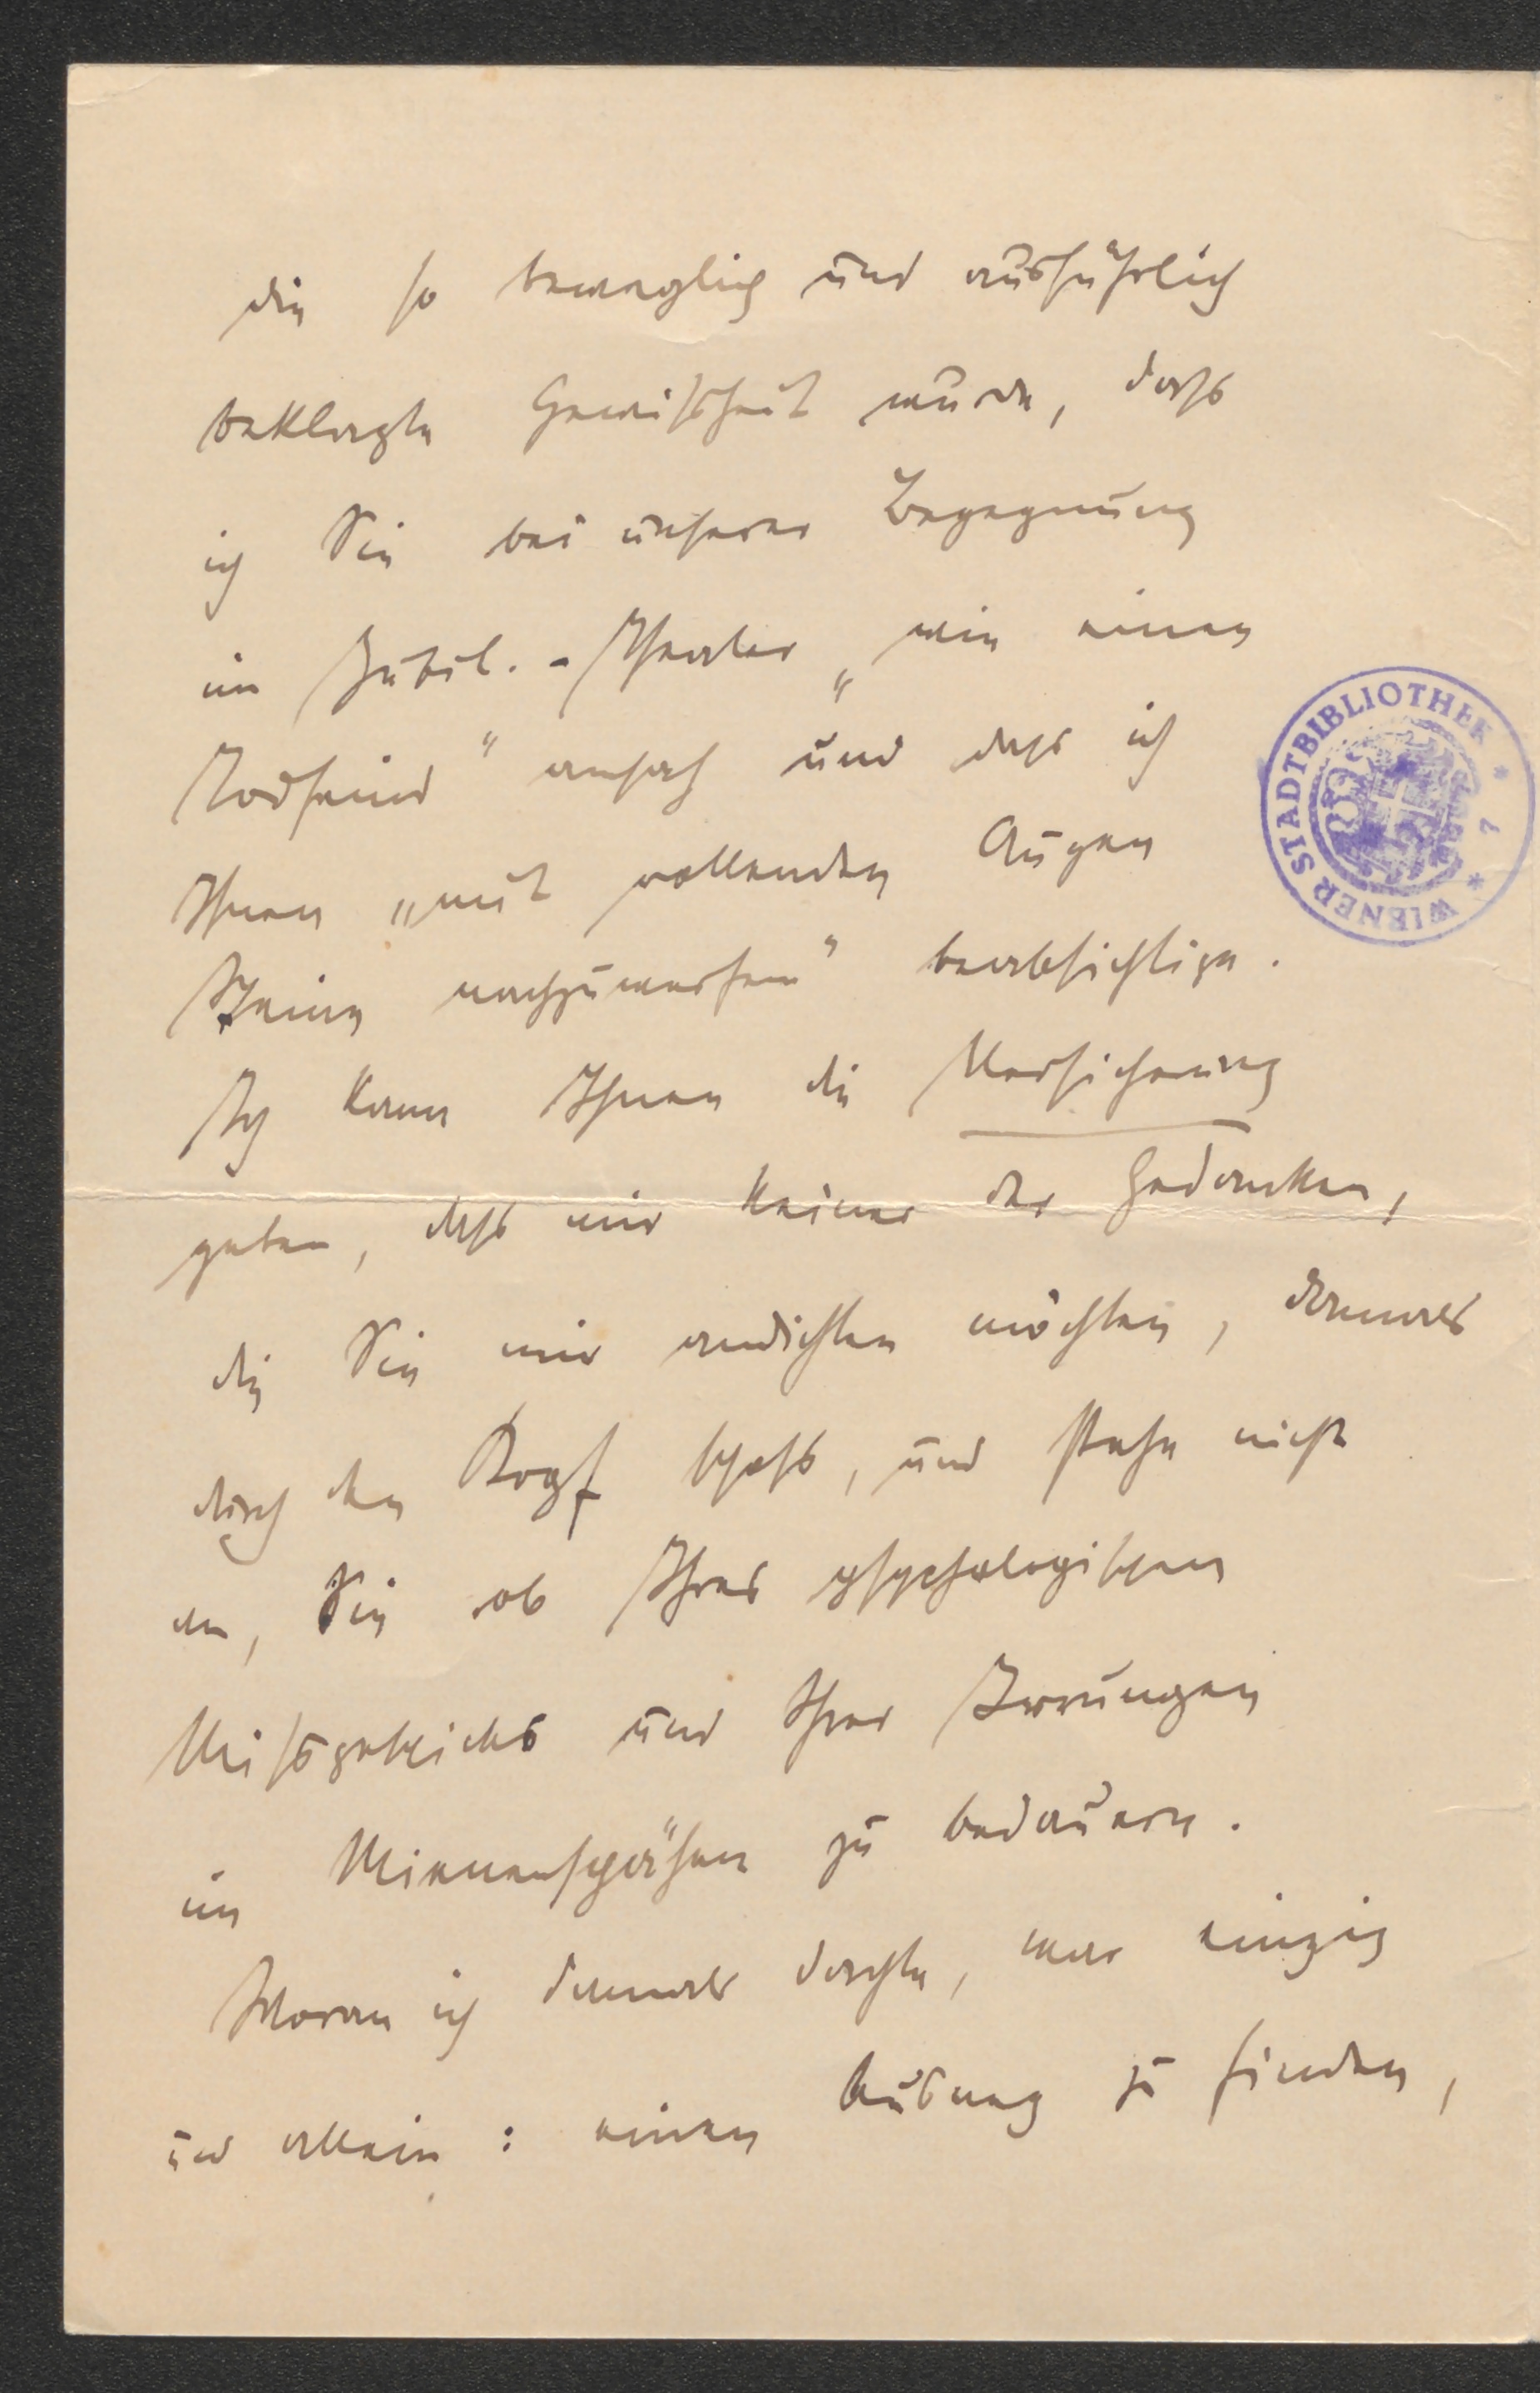 die so beweglich und ausführlich
beklagte Gewissheit wurde, dass
ich Sie bei unserer Begegnung
im Jubil.-Theater „wie einen
Todfeind" ansah und dass ich
Ihnen „mit rollenden Augen
Steine nachzuwerfen" beabsichtige.
Ich kann Ihnen die Versicherung
geben, dass mir keiner der Gedanken,
die Sie mir andichten möchten, damals
durch den Kopf schoss, und stehe nicht
an, Sie ob Ihres psychologischen
Missgeschicks und Ihrer Irrungen
im Mienenspähen zu bedauern.
Woran ich damals dachte, war einzig
und allein: einen Ausweg zu finden,
WIENER STADTBIBLIOTHEK * 7 *